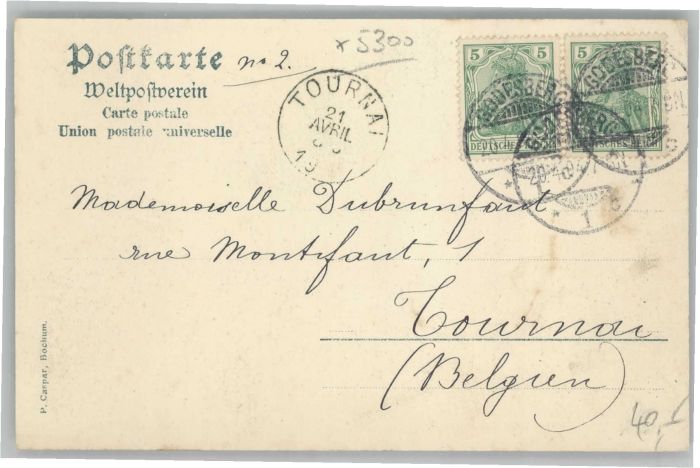 Postkarte no 2.
x 5300
Weltpostverein
Carte postale
Union postale universelle
TOURNAI
21
AVRIL
19
5 5
DEUTSCHES REICH
GODESBERG
GODESBERG
Mademoiselle Dubrunfaut
rue Montifaut, 1
Tournai
(Belgien)
P. Caspar, Bochum.
40,-